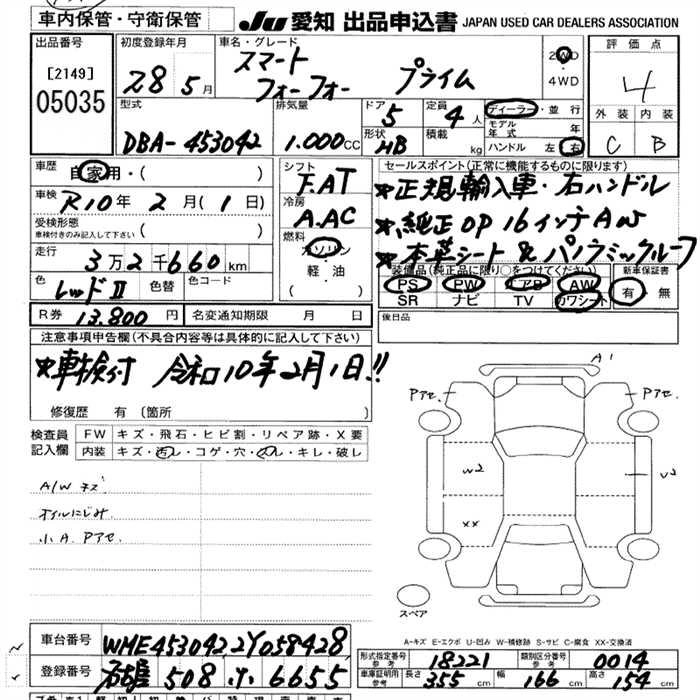 車内保管・守衛保管
JU 愛知 出品申込書 JAPAN USED CAR DEALERS ASSOCIATION
出品番号
[2149]
05035
初度登録年月
28 5月
車名・グレード
スマート
フォーフォー プライム
2WD
・
4WD
評価点
4
外装 内装
C B
型式
DBA-453042
排気量
1.000cc
ドア
5
形状
HB
定員
4人
積載
kg
ディーラー・並行
モデル年式 年
ハンドル 左 右
車歴
自家用・( )
車検
R10年 2月(1日)
受検形態
車検付きのみ記入して下さい ( )
走行
3万2千660km
色
レッドⅡ
色替
色コード
R券 13.800円
名変通知期限 月 日
シフト
F.AT
冷房
A.AC
燃料
ガソリン
・
軽・油
( )
セールスポイント(正常に機能するものに限ります)
★正規輸入車・右ハンドル
★純正OP16インチAW
★本革シート&パノラミックルーフ
装備品(純正品に限り○をつけてください)
PS PW エアB AW
SR ナビ TV カワシート
新車保証書
有 無
後日品
注意事項申告欄(不具合内容等は具体的に記入して下さい)
★車検付 令和10年2月1日!!
修復歴 有 (箇所 )
検査員記入欄
FW キズ・飛石・ヒビ割・リペア跡・X要
内装 キズ・汚レ・コゲ・穴・スレ・キレ・破レ
A/W キズ
オイルにじみ
小A. Pアセ.
A1
Pアセ.
Pアセ.
W2
U2
XX
スペア
A-キズ E-エクボ U-凹み W-補修跡 S-サビ C-腐食 XX-交換済
車台番号
WME4530422Y058428
登録番号
名古屋 508 り 6655
形式指定番号
参考
18221
類別区分番号
参考
0014
車庫証明用
参考
長さ
355cm
幅
166cm
高さ
154cm